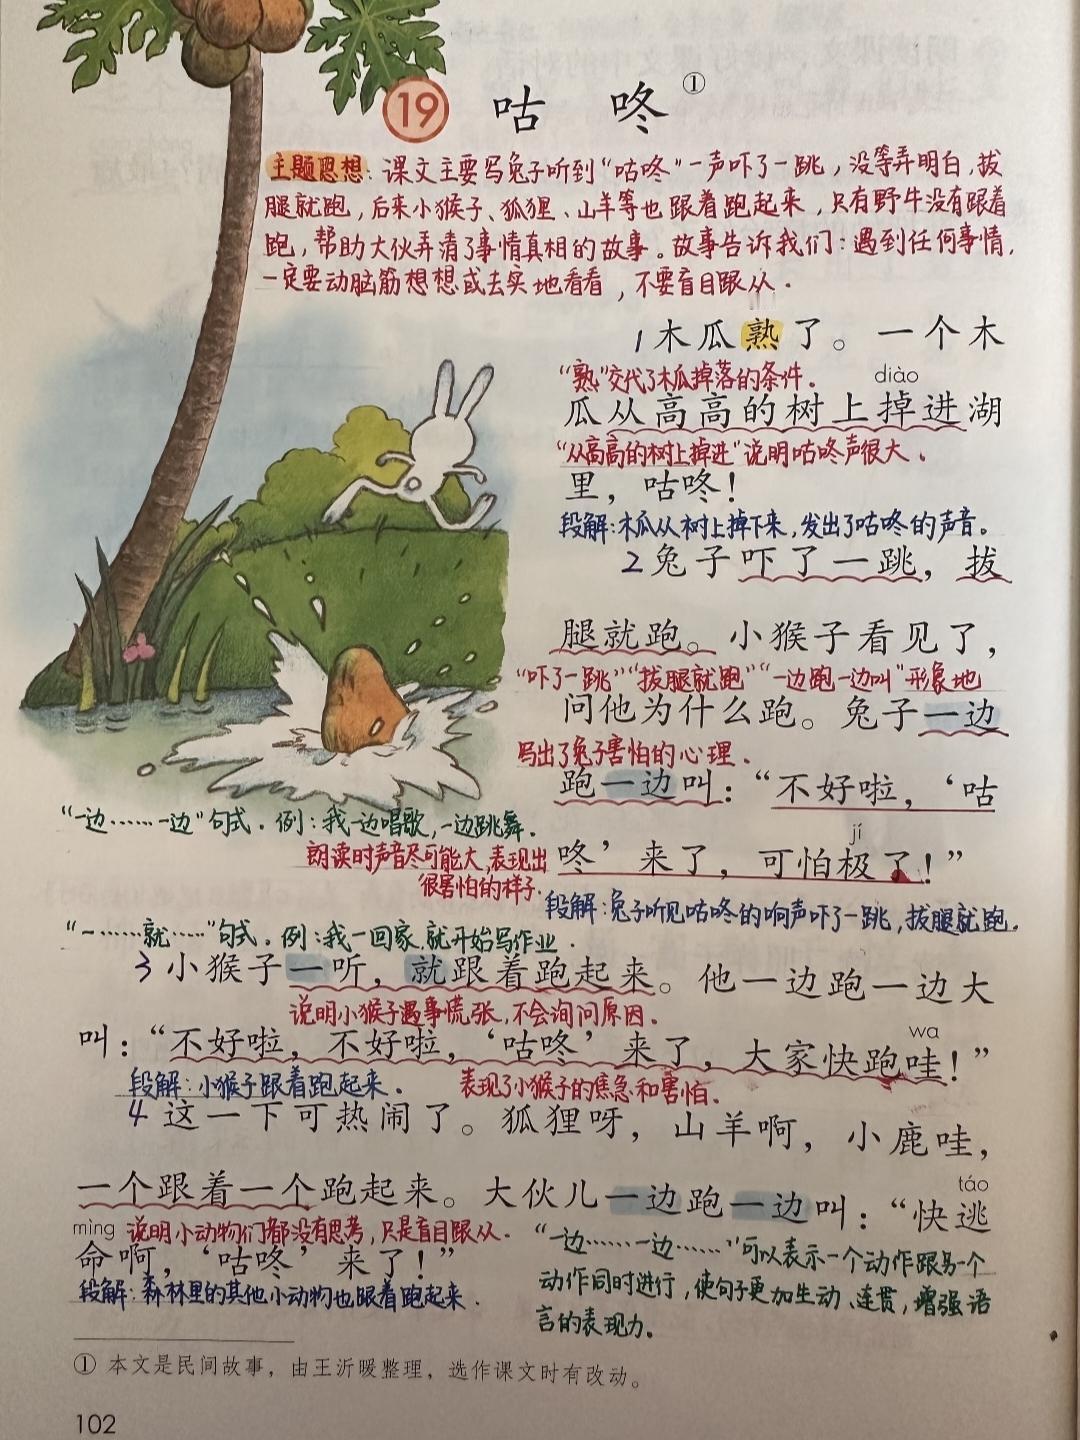 19 咕咚①
主题思想：课文主要写兔子听到“咕咚”一声吓了一跳，没等弄明白，拔
腿就跑，后来小猴子、狐狸、山羊等也跟着跑起来，只有野牛没有跟着
跑，帮助大伙弄清了事情真相的故事。故事告诉我们：遇到任何事情，
一定要动脑筋想想或去实地看看，不要盲目跟从．
1木瓜熟了。一个木
“熟”交代了木瓜掉落的条件．
diào
瓜从高高的树上掉进湖
“从高高的树上掉进”说明咕咚声很大．
里，咕咚！
段解：木瓜从树上掉下来，发出了咕咚的声音。
2兔子吓了一跳，拔
腿就跑。小猴子看见了，
“吓了一跳”“拔腿就跑”“一边跑一边叫”形象地
问他为什么跑。兔子一边
写出了兔子害怕的心理．
跑一边叫：“不好啦，‘咕
“一边……一边”句式．例：我一边唱歌，一边跳舞．
jí
咚’来了，可怕极了！”
朗读时声音尽可能大，表现出
很害怕的样子．
段解：兔子听见咕咚的响声吓了一跳，拔腿就跑．
“一……就……”句式．例：我一回家就开始写作业．
3小猴子一听，就跟着跑起来。他一边跑一边大
说明小猴子遇事慌张，不会询问原因．
wa
叫：“不好啦，不好啦，‘咕咚’来了，大家快跑哇！”
段解：小猴子跟着跑起来．
表现了小猴子的焦急和害怕．
4这一下可热闹了。狐狸呀，山羊啊，小鹿哇，
táo
一个跟着一个跑起来。大伙儿一边跑一边叫：“快逃
mìng 说明小动物们都没有思考，只是盲目跟从．
命啊，‘咕咚’来了！”
段解：森林里的其他小动物也跟着跑起来．
“一边……一边……”可以表示一个动作跟另一个
动作同时进行，使句子更加生动、连贯，增强语
言的表现力。
① 本文是民间故事，由王沂暖整理，选作课文时有改动。
102